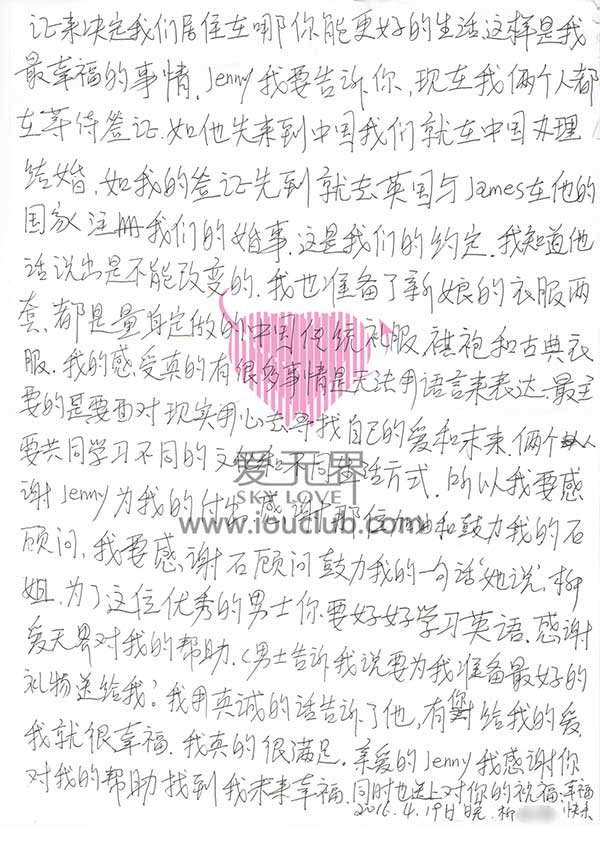 让来决定我们居住在哪你能更好的生活这样是我
最幸福的事情. Jenny我要告诉你、现在我俩个人都
在等待签证. 如他先来到中国我们就在中国办理
结婚、如我的签证先到就去英国与James在他的
国家注册我们的婚事. 这是我们的约定. 我知道他
话说出是不能改变的. 我也准备了新娘的衣服两
套、都是量身定做的中国传统礼服、祺袍和古典衣
服. 我的感受真的有很多事情是无法用语言来表达. 最主
要的是要面对现实用心去寻找自己的爱和未来. 俩个人
要共同学习不同的文化和不同生活方式. 所以我要感
谢Jenny为我的付出. 感谢那位加油和鼓力我的石
顾问、我要感谢石顾问鼓力我的一句话"她说、柳
姐、为了这位优秀的男士你要好好学习英语. 感谢
爱无界对我的帮助. (男士告诉我说要为我准备最好的
礼物送给我? 我用真诚的话告诉了他, 有您对给我的爱.
我就很幸福. 我真的很满足. 亲爱的Jenny我感谢你
对我的帮助找到我未来幸福. 同时也送上对你的祝福:幸福
快乐
2016.4.19日 晚. 柳
爱无界
SKY LOVE
www.iouclub.com